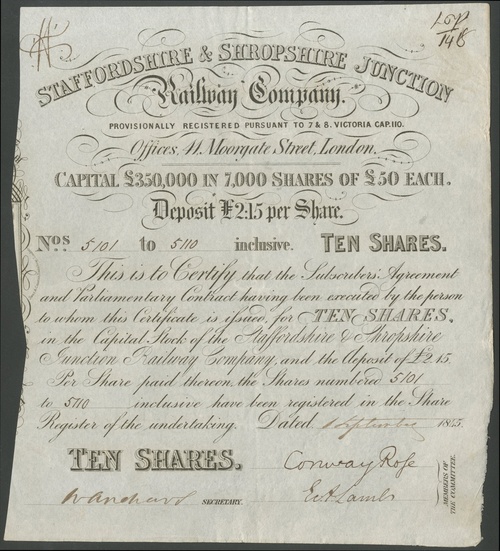 £50
148
STAFFORDSHIRE & SHROPSHIRE JUNCTION
Railway Company.
PROVISIONALLY REGISTERED PURSUANT TO 7 & 8. VICTORIA CAP. 110.
Offices, 41, Moorgate Street, London.
CAPITAL £350,000 IN 7,000 SHARES OF £50 EACH.
Deposit £2:15 per Share.
Nos 5101 to 5110 inclusive. TEN SHARES.
This is to Certify that the Subscribers' Agreement
and Parliamentary Contract having been executed by the person
to whom this Certificate is issued, for TEN SHARES,
in the Capital Stock of the Staffordshire & Shropshire
Junction Railway Company, and the deposit of £2.15.
Per Share paid thereon, the Shares numbered 5101
to 5110 inclusive have been registered in the Share
Register of the undertaking. Dated September 1845.
TEN SHARES.
Conway Rose
SECRETARY.
Lamb
MEMBERS OF
THE COMMITTEE.